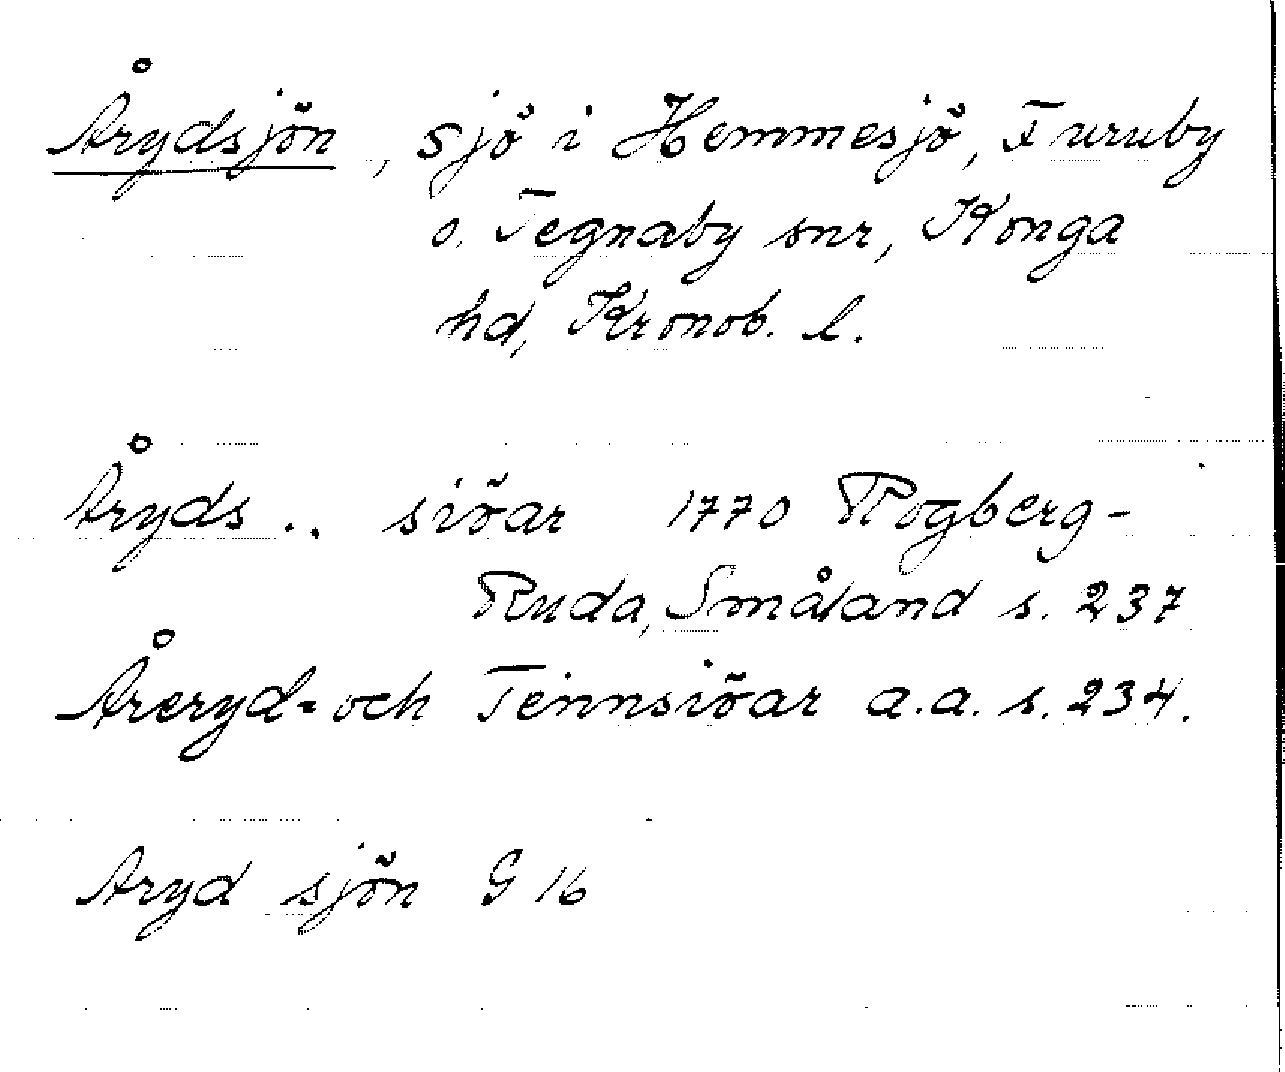 Årydsjön, sjö i Hemmesjö, Furuby
o. Tegnaby snr, Konga
hd, Kronob. l.
Åryds .. siöar 1770 Rogberg-
Ruda, Småland s. 237
Åreryd= och Tennsiöar a.a. s. 234.
Aryd sjön G 16